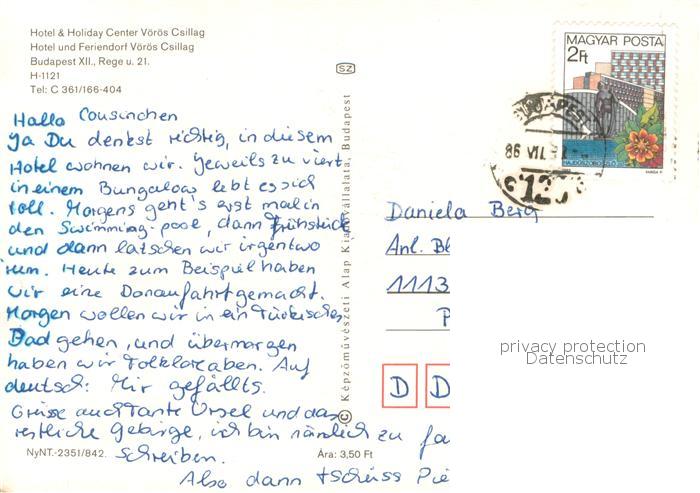 Hotel & Holiday Center Vörös Csillag
Hotel und Feriendorf Vörös Csillag
Budapest XII., Rege u. 21.
H-1121
Tel: C 361/166-404
Hallo Cousinchen
Ja Du denkst richtig, in diesem
Hotel wohnen wir. Jeweils zu viert
in einem Bungalow lebt es sich
toll. Morgens geht's erst mal in
den Swimming-pool, dann Frühstück
und dann latschen wir irgentwo
rum. Heute zum Beispiel haben
wir eine Donaufahrt gemacht.
Morgen wollen wir in ein Türkisches
Bad gehen, und übermorgen
haben wir Folkloreaben. Auf
deutsch: Mir gefällts.
Grüsse auch Tante Ursel und das
restliche Gebirge, ich bin nämlich zu fa
schreiben.
Also dann tschüss Pie
NyNT.-2351/842.
Ára: 3,50 Ft
© Képzőművészeti Alap Kiadóvállalata, Budapest
SZ
MAGYAR POSTA
2Ft
HAJDÚSZOBOSZLÓ
VARGA P.
BUDAPEST
86 VII.
Daniela Berg
Anl.
1113
P
D D
privacy protection
Datenschutz